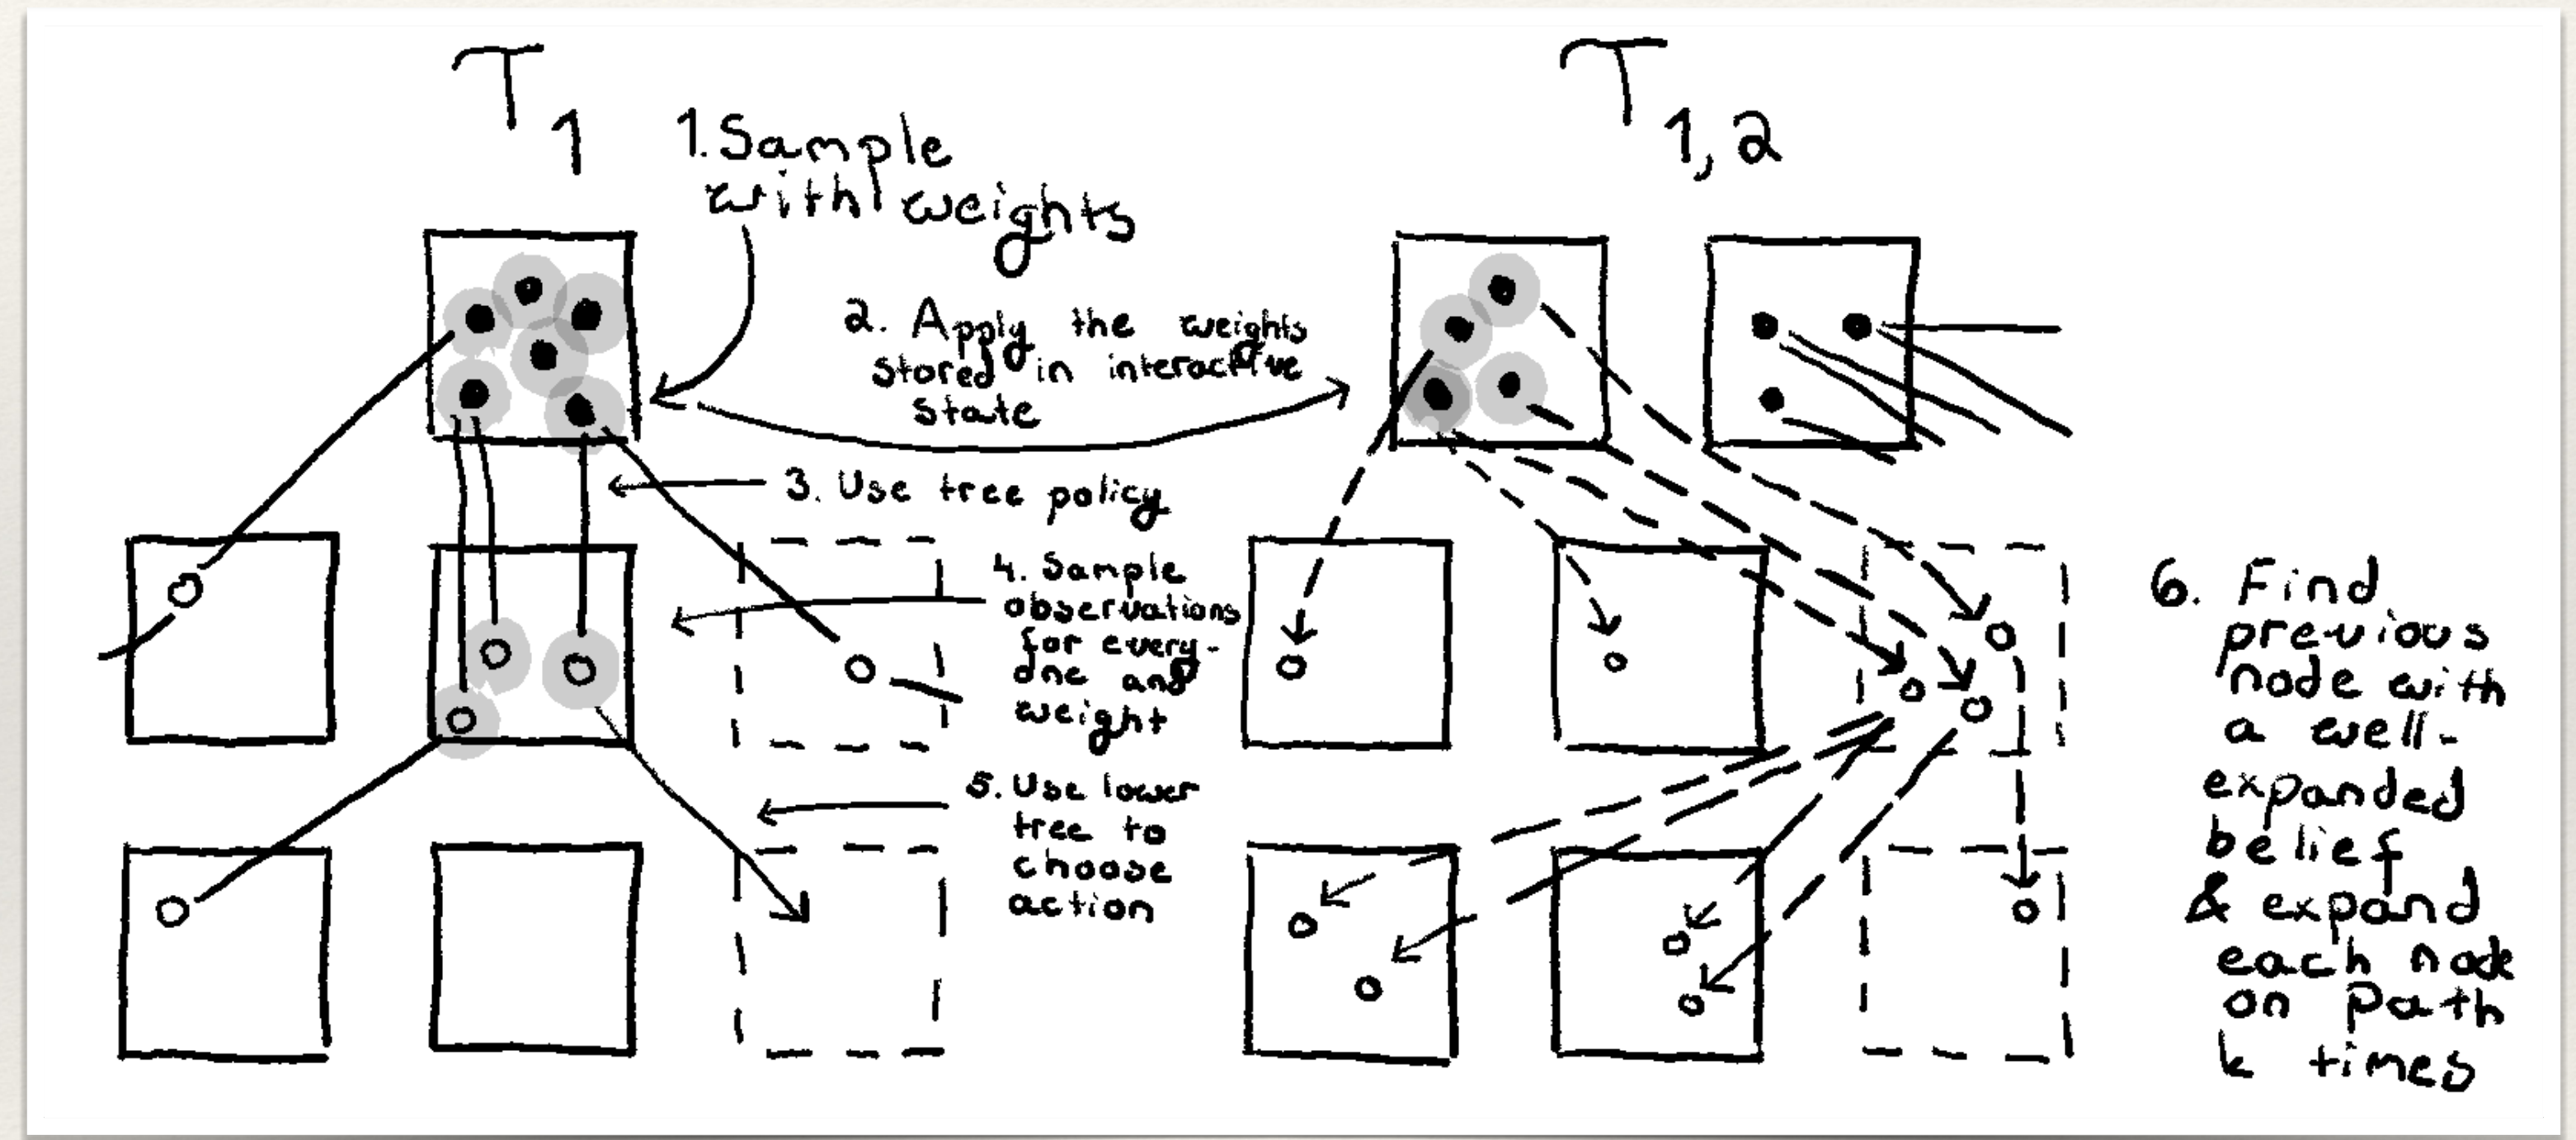 T 1
T 1,2
1. Sample
with weights
2. Apply the weights
stored in interactive
state
3. Use tree policy
4. Sample
observations
for every-
one and
weight
5. Use lower
tree to
choose
action
6. Find
previous
node with
a well-
expanded
belief
& expand
each node
on path
k times